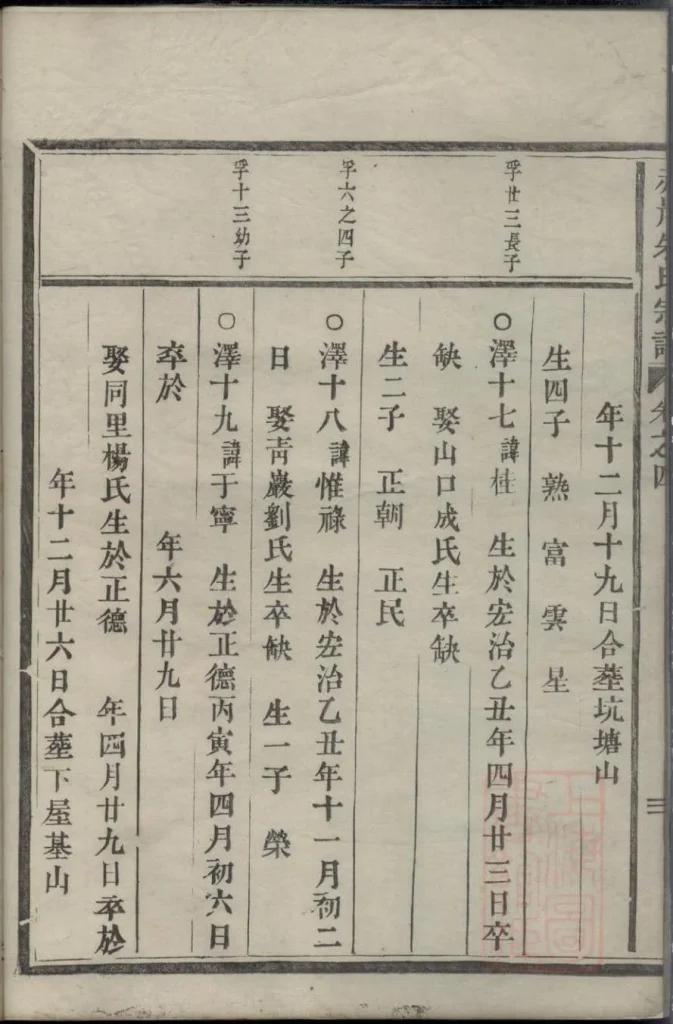 朱氏宗譜 卷之四 三
年十二月十九日合塟坑塘山
生四子 熟 富 雲 星
孚廿三長子
○澤十七諱桂 生於宏治乙丑年四月廿三日卒
缺 娶山口成氏生卒缺
生二子 正朝 正民
孚六之四子
○澤十八諱惟祿 生於宏治乙丑年十一月初二
日 娶青巖劉氏生卒缺 生一子 榮
孚十三幼子
○澤十九諱于寧 生於正德丙寅年四月初六日
卒於 年六月廿九日
娶同里楊氏生於正德 年四月廿九日卒於
年十二月廿六日合塟下屋基山